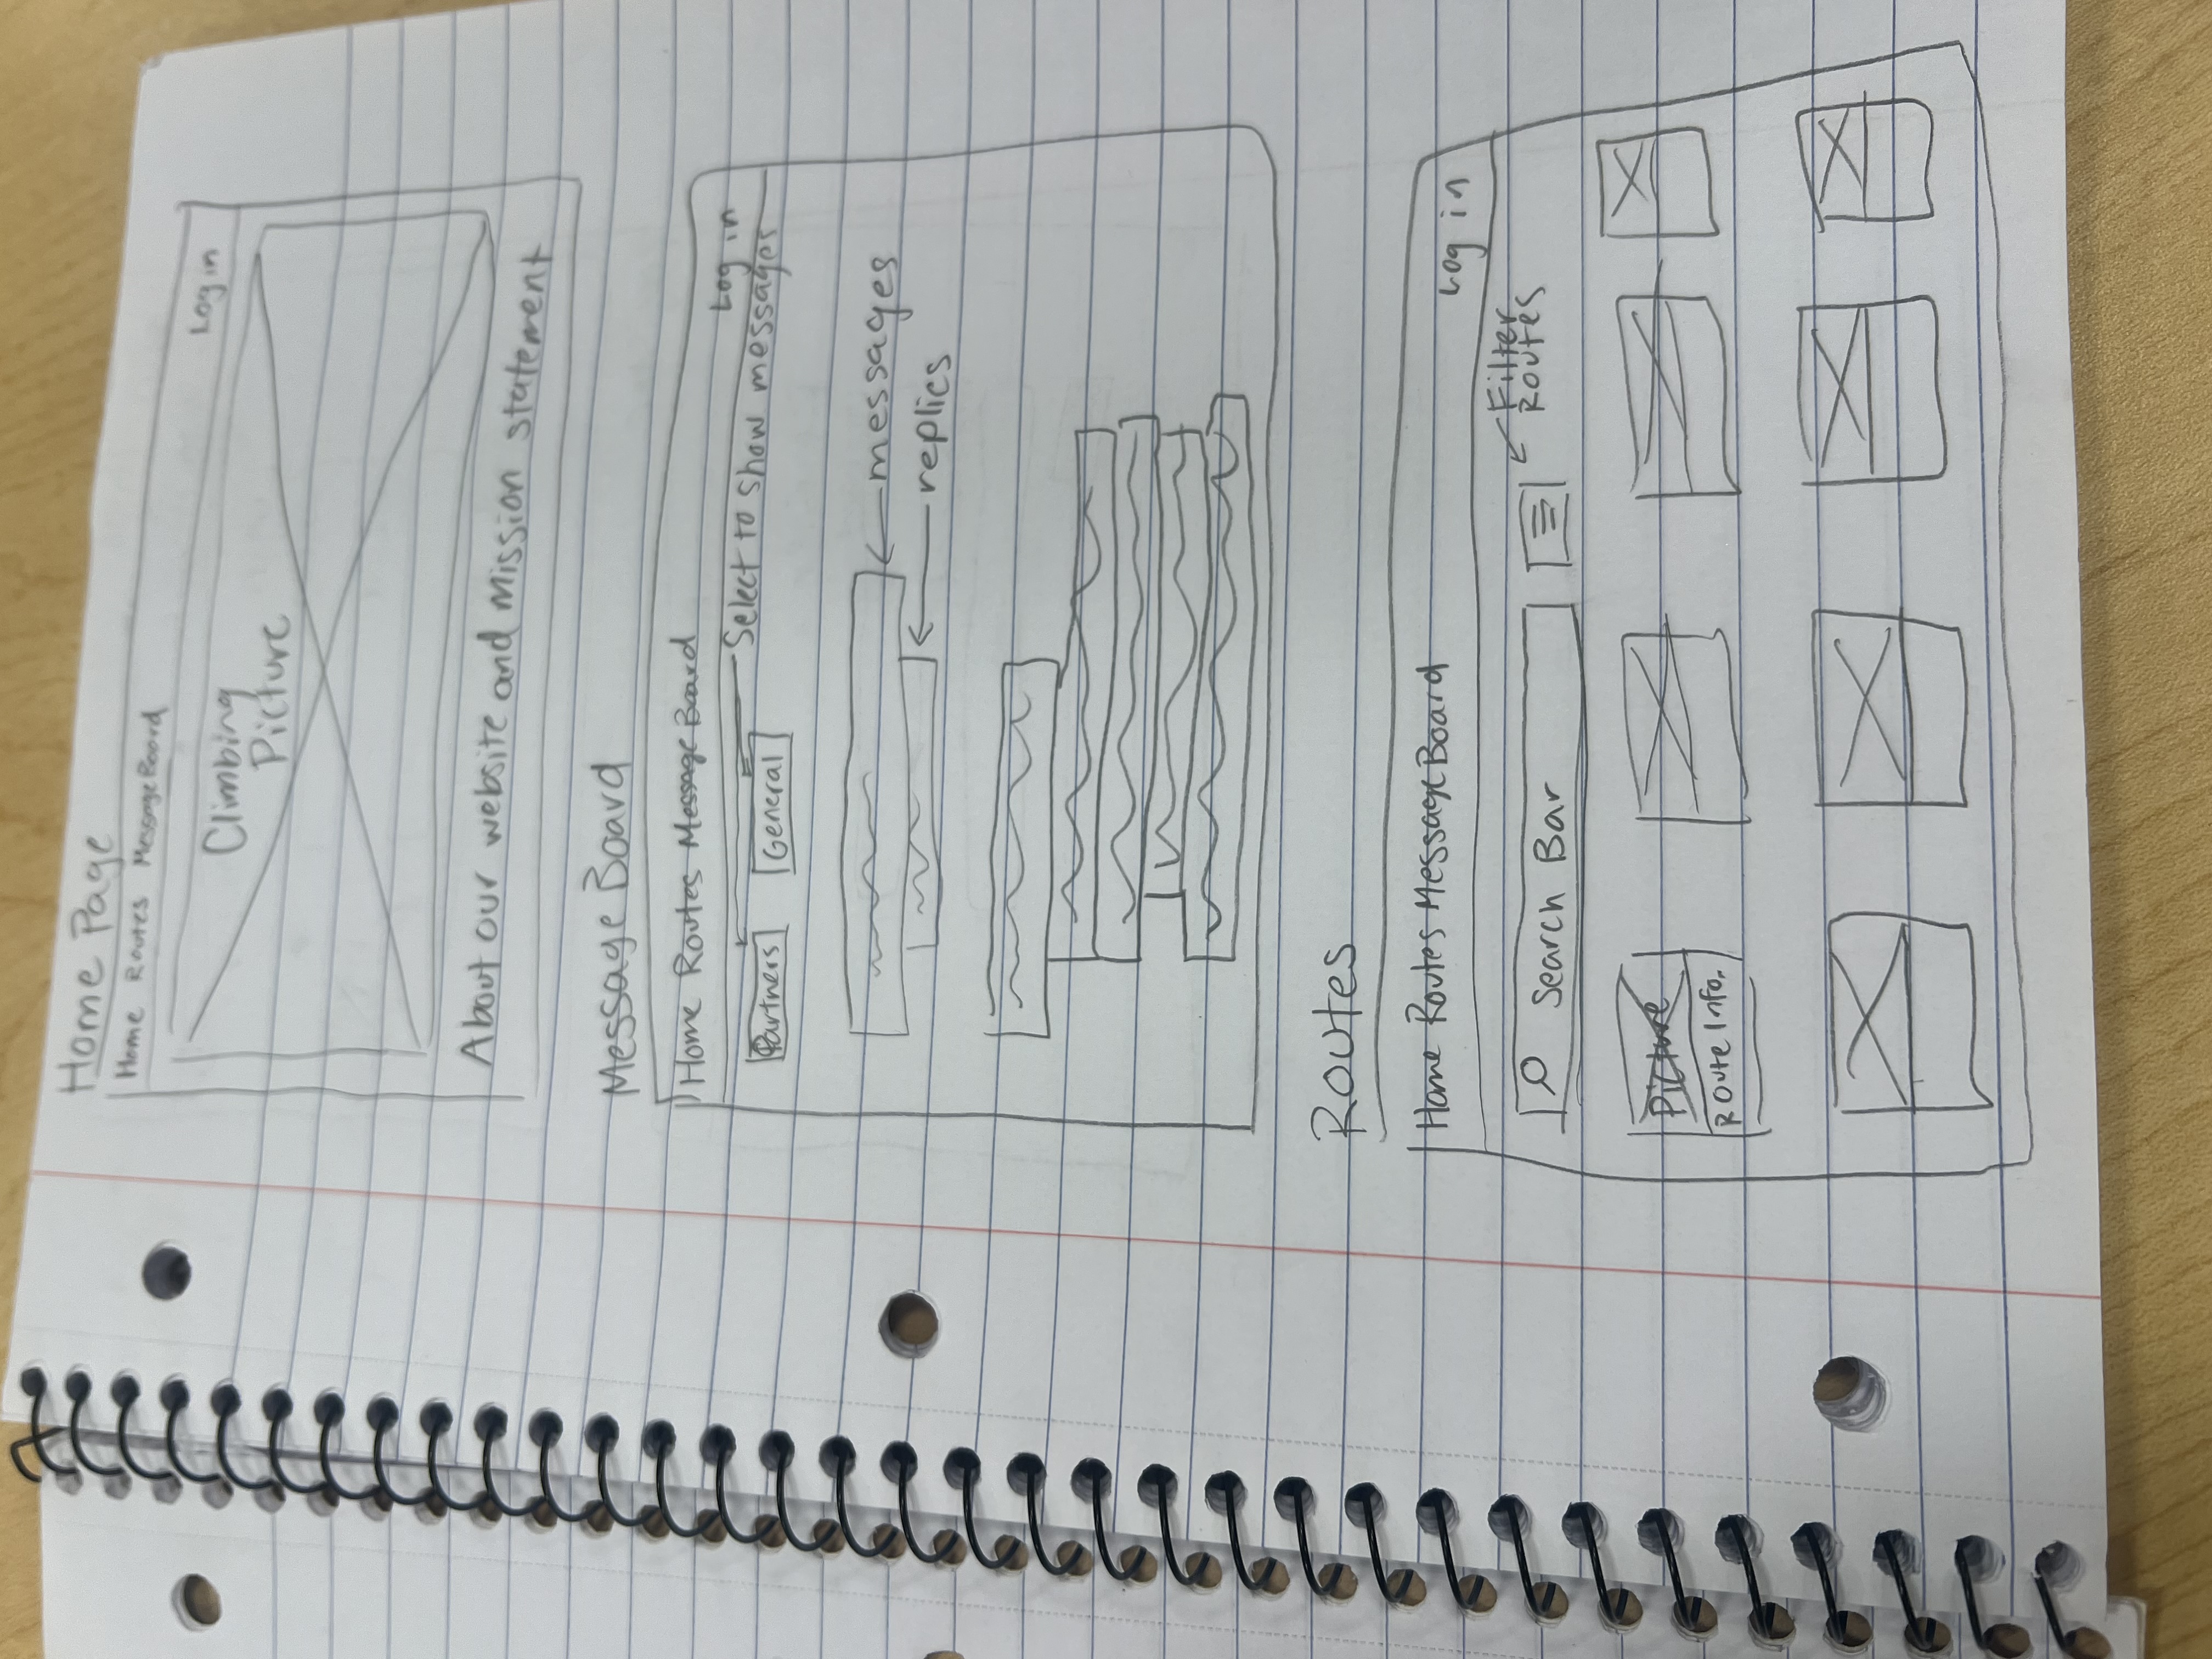 Home Page
Home Routes MessageBoard
Log in
Climbing
Picture
About our website and mission statement
Message Board
Home Routes Message Board
Log in
Select to show messages
Partners General
messages
replies
Routes
Home Routes MessageBoard
Log in
Filter
Routes
Search Bar
Picture
Route Info.